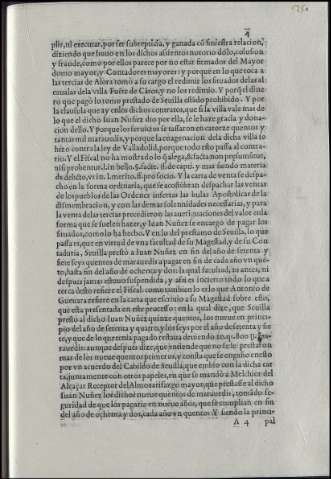 4
plir, ni executar, por ser subrepticia, y ganada cõ siniestra relacion,
diziendo que huuo en los dichos assientos notorio dolo, colusion
y fraude, como por ellos parece por no estar firmados del Mayor
domo mayor, y Contadores mayores: y porque en lo que toca a
las tercias de Alora tomò a su cargo el redimir los situados de las al
cualas de la villa Fuẽte de Cãtos, y no los redimio. Y porq̃ el dine
ro que pagò lo tomò prestado de Seuilla estãdo prohibido. Y por
la clausula que ay en los dichos contratos, que si la villa vale mas de
lo que el dicho Iuan Nuñez dio por ella, se le haze gracia y dona-
cion dello. Y porque los seruicios se tassaron en catorze quentos y
tantos mil marauedis, y porque la enagenacion della dicha villa se
hizo contra la ley de Valladolid, porque todo esto passa al contra-
rio. Y el Fiscal no ha mostrado lo q̃ alega,
Y la carta de venta se despa-
cho en la forma ordinaria, que se acostũbran despachar las ventas
de los pueblos de las Ordenes insertas las bulas Apostolicas de la
dismembracion, y con las demas solenidades necessarias, y para
la venta de las tercias precedieron las aueriguaciones del valor en la
forma que se suelen hazer, y Iuan Nuñez se encargo de pagar los
situados, como lo ha hecho. Y en lo del prestamo de Seuilla, lo que
passa es, que en virtud de vna facultad de su Magestad, y de su Con
taduria, Seuilla prestò a Iuan Nuñez en fin del año de setenta y
siete seys quentos de marauedis a pagar en fin de cada año vn quẽ-
to, hasta fin del año de ochenta y dos
despues jamas estuuo suspendida, y assi es incierto todo lo que a
cerca desto refiere el Fiscal: como tambien lo es lo que Antonio de
Gueuara refiere en la carta que escriuio a su Magestad sobre esto,
que esta presentada en este processo: en la qual dize, que Seuilla
prestò al dicho Iuan Nuñez quinze quentos, los nueue en princi-
pio del año de setenta y quatro, y los seys por el año de setenta y sie
te, y que de lo que tenia pagado restaua deuiendo
rauedis: aunque despues dize, que entiende que no se le prestaron
mas de los nueue quentos primeros, y consta que se engaño en ello
por vn acuerdo del Cabildo de Seuilla, que embio con la dicha car
ta, juntamente con otros papeles, en que se mandò a Melchior del
Alcaçar Receptor del Almoxarifazgo mayor, que prestasse al dicho
Iuan Nuñez los dichos nueue quentos de marauedis, tomãdo se-
guridad de que los pagaria en nueue años, que se cumplian en fin
del año de ochenta y dos, cada año vn quento. Y siendo la princi-
A 4 pal